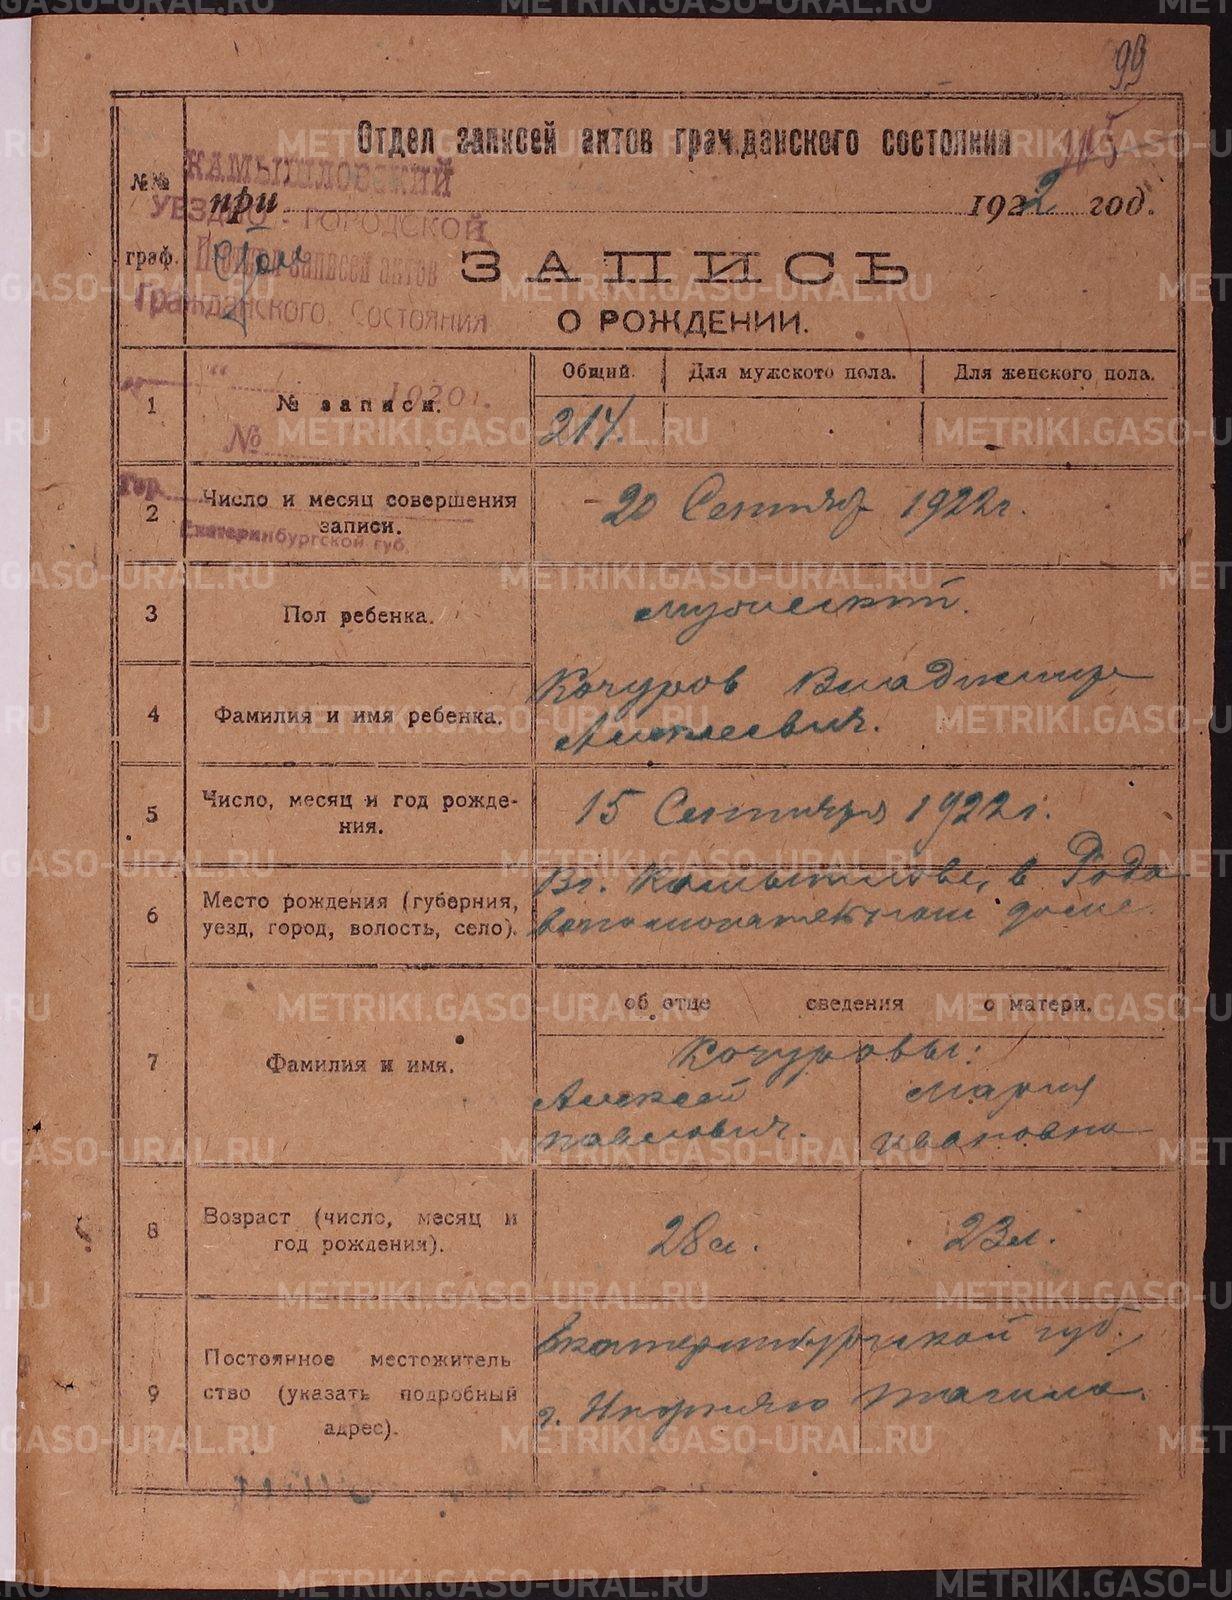 99
Отдел записей актов гражданского состояния
№№
КАМЫШЛОВСКИЙ
при 1922 год.
УЕЗДНО-ГОРОДСКОЙ
граф.
записей актов
ЗАПИСЬ
Гражданского Состояния
О РОЖДЕНИИ.
Общий. Для мужского пола. Для женского пола.
" " 1920 г.
1 № записи. 214.
№
гор.
2 Число и месяц совершения записи. 20 Сентяб 1922 г.
Екатеринбургской губ.
3 Пол ребенка. мужеский.
4 Фамилия и имя ребенка. Кочуров Владимир
Алексеевич.
5 Число, месяц и год рожде-
ния. 15 Сентября 1922 г.
6 Место рождения (губерния,
уезд, город, волость, село). В г. Камышлове, в Родо
вспомогательном доме.
об отце сведения о матери.
7 Фамилия и имя. Кочуровы:
Алексей Мария
Павлович. Ивановна
8 Возраст (число, месяц и
год рождения). 28 л. 23 л.
9 Постоянное местожитель
ство (указать подробный
адрес). Екатеринбургской губ.,
г. Нижняго Тагила.
METRIKI.GASO-URAL.RU